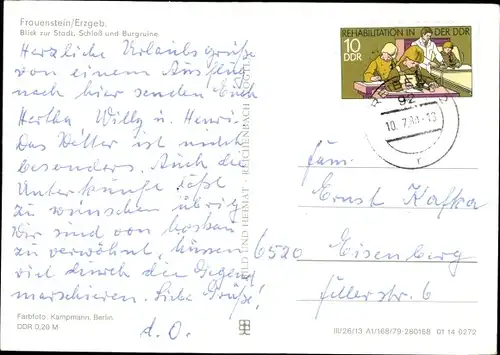 Frauenstein/Erzgeb.
Blick zur Stadt, Schloß und Burgruine
Herzliche Urlaubsgrüße
von einem Ausflug
nach hier senden Euch
Hertha Willy u. Henri.
Das Wetter ist nicht
besonders. Auch die
Unterkünfte läßt
zu wünschen übrig
Wir sind von
zu verwöhnt, müssen
viel durch die Gegend
marschieren. Liebe Grüße!
d. O.
Farbfoto: Kampmann, Berlin
DDR 0,20 M
BILD UND HEIMAT REICHENBACH
REHABILITATION IN DER DDR
10
DDR
92
10.7.80-18
r
Fam.
Ernst Kafka
6520 Eisenberg
str. 6
III/26/13 A1/168/79-280188 01 14 0272